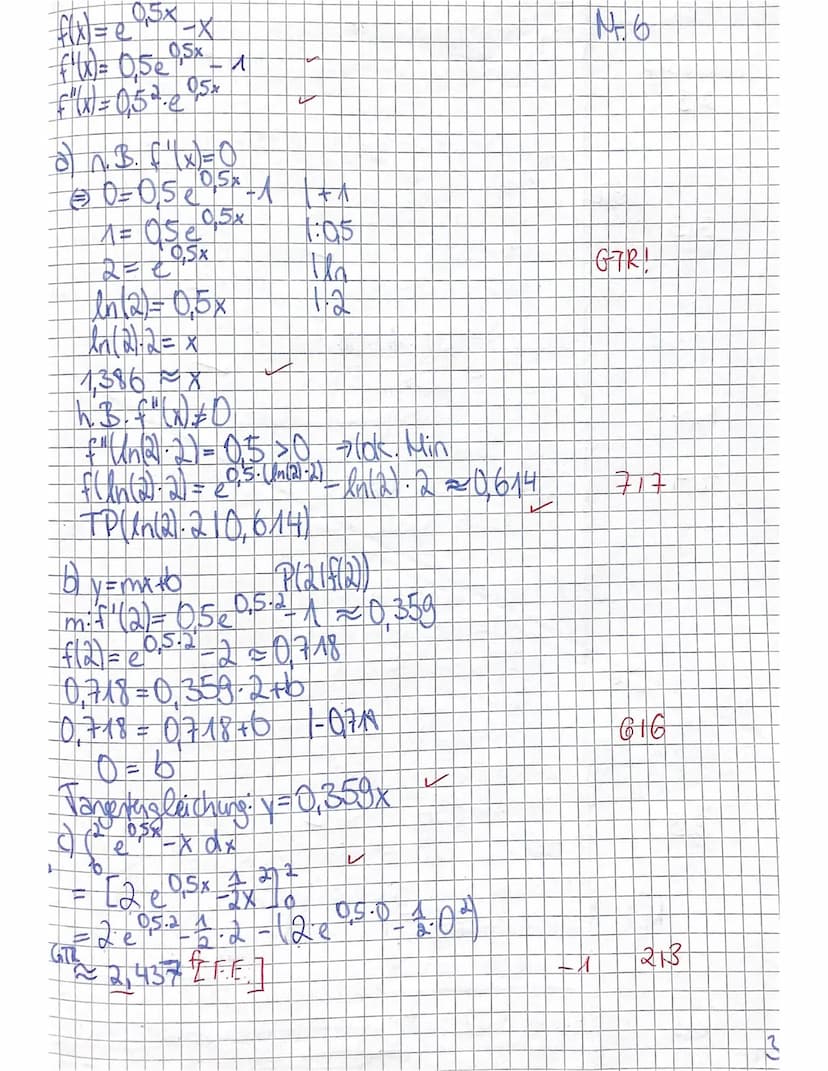 f(x) = e^0,5x - x Nr. 6
f'(x) = 0,5e^0,5x - 1 ✓
f''(x) = 0,5² · e^0,5x ✓
a) n.B. f'(x)=0
⇔ 0 = 0,5e^0,5x - 1 |+1
1 = 0,5e^0,5x |:0,5
2 = e^0,5x |ln GTR!
ln(2) = 0,5x |·2
ln(2)·2 = x
1,386 ≈ x ✓
h.B. f''(x)≠0
f''(ln(2)·2) = 0,5 > 0 → lok. Min
f(ln(2)·2) = e^0,5·(ln(2)·2) - ln(2)·2 ≈ 0,614 ✓ 7/7
TP(ln(2)·2|0,614)
b) y=mx+b P(2|f(2))
m: f'(2) = 0,5e^0,5·2 - 1 ≈ 0,359
f(2) = e^0,5·2 - 2 ≈ 0,718
0,718 = 0,359·2+b
0,718 = 0,718+b |-0,718 6/6
0 = b
Tangentengleichung: y=0,359x ✓
c) ∫₀² e^0,5x - x dx ✓
= [2e^0,5x - 1/2x²]₀²
= 2·e^0,5·2 - 1/2·2 - (2e^0,5·0 - 1/2·0²)
GTR ≈ 2,437 f [F.E.] -1 2/3
3